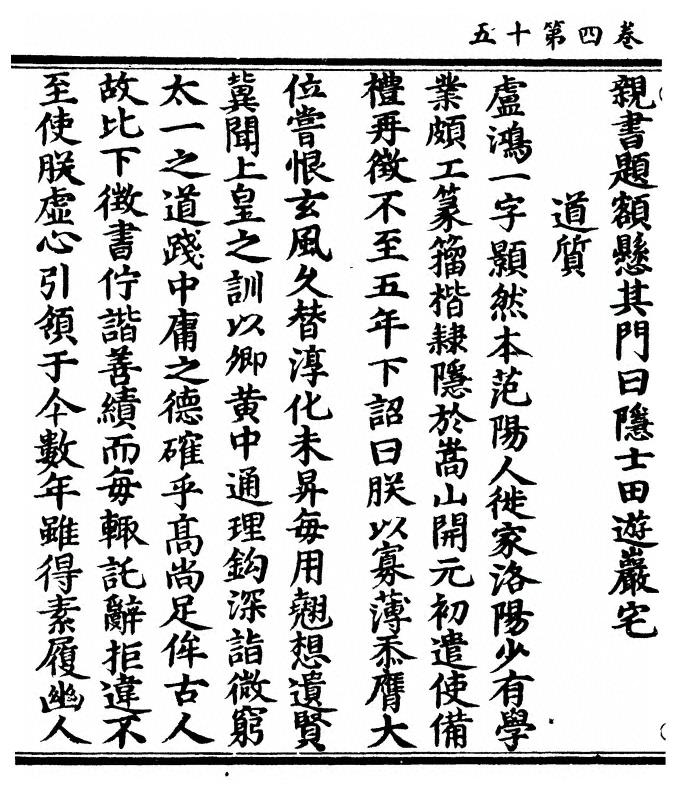 卷四第十五
親書題額懸其門曰隱士田遊巖宅
道質
盧鴻一字顥然本范陽人徙家洛陽少有學
業頗工篆籀楷隸隱於嵩山開元初遣使備
禮再徵不至五年下詔曰朕以寡薄忝膺大
位嘗恨玄風久替淳化未昇每用翹想遺賢
冀聞上皇之訓以卿黃中通理鈎深詣微窮
太一之道踐中庸之德確乎高尚足侔古人
故比下徵書佇諧善績而每輙託辭拒違不
至使朕虛心引領于今數年雖得素履幽人